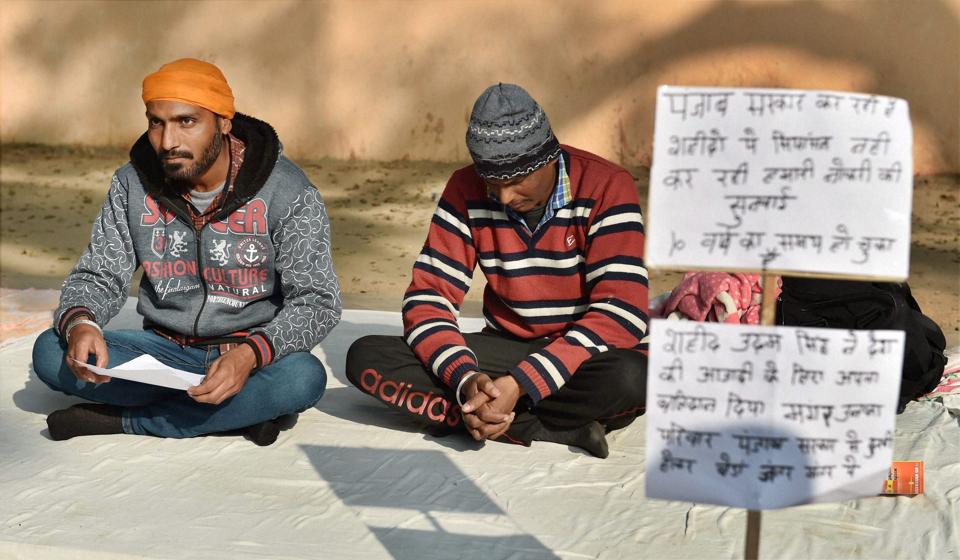 SOCCER
FASHION CULTURE
NATURAL
adidas
पंजाब सरकार कर रही है
शहीदो पे सियासत नही
कर रही हमारी नौकरी की
सुनवाई
10 वर्ष का समय हो चुका
शहीद उधम सिंह ने देश
की आजादी के लिए अपना
बलिदान दिया मगर उनका
परिवार पंजाब सरकार से दुखी
होकर पे